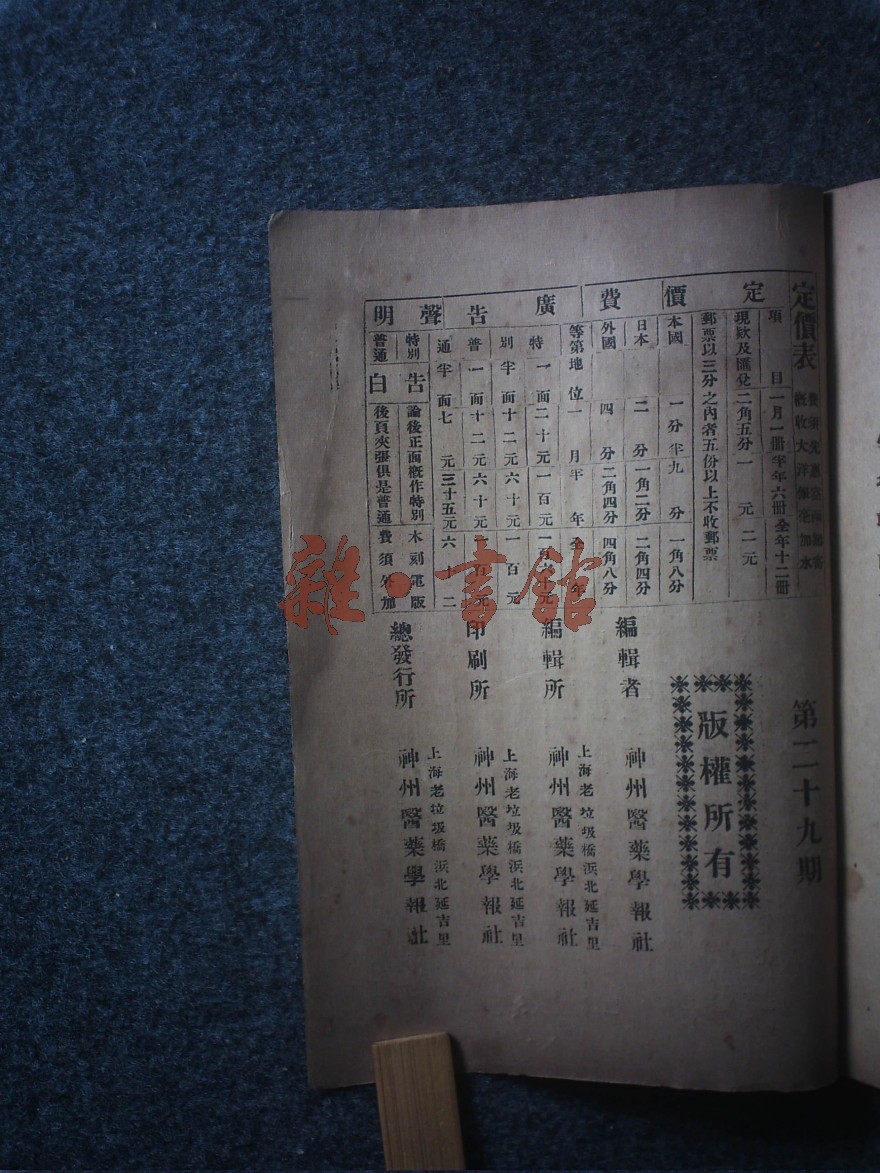 定價表
第二十九期
定價
項目 一月一冊 半年六冊 全年十二冊
現欵及匯兌 二角五分 一元 二元
郵票以三分之內者五份以上不收郵票
費
本國 一分半 九分 一角八分
日本 二分 一角二分 二角四分
外國 四分 二角四分 四角八分
廣告
等第 地位 一月 半年 全年
特 一面 二十元 一百元
別 半面 十二元 六十元 一百元
普 一面 十二元 六十元 一百元
通 半面 七元 三十五元 六十
聲明
特別 告 論後正面概作特別 木刻電版
普通 白 後頁夾張俱是普通 費須外加
版權所有
編輯者 神州醫藥學報社
編輯所 上海老垃圾橋浜北延吉里
神州醫藥學報社
印刷所 上海老垃圾橋浜北延吉里
神州醫藥學報社
總發行所 上海老垃圾橋浜北延吉里
神州醫藥學報社
雜·書館